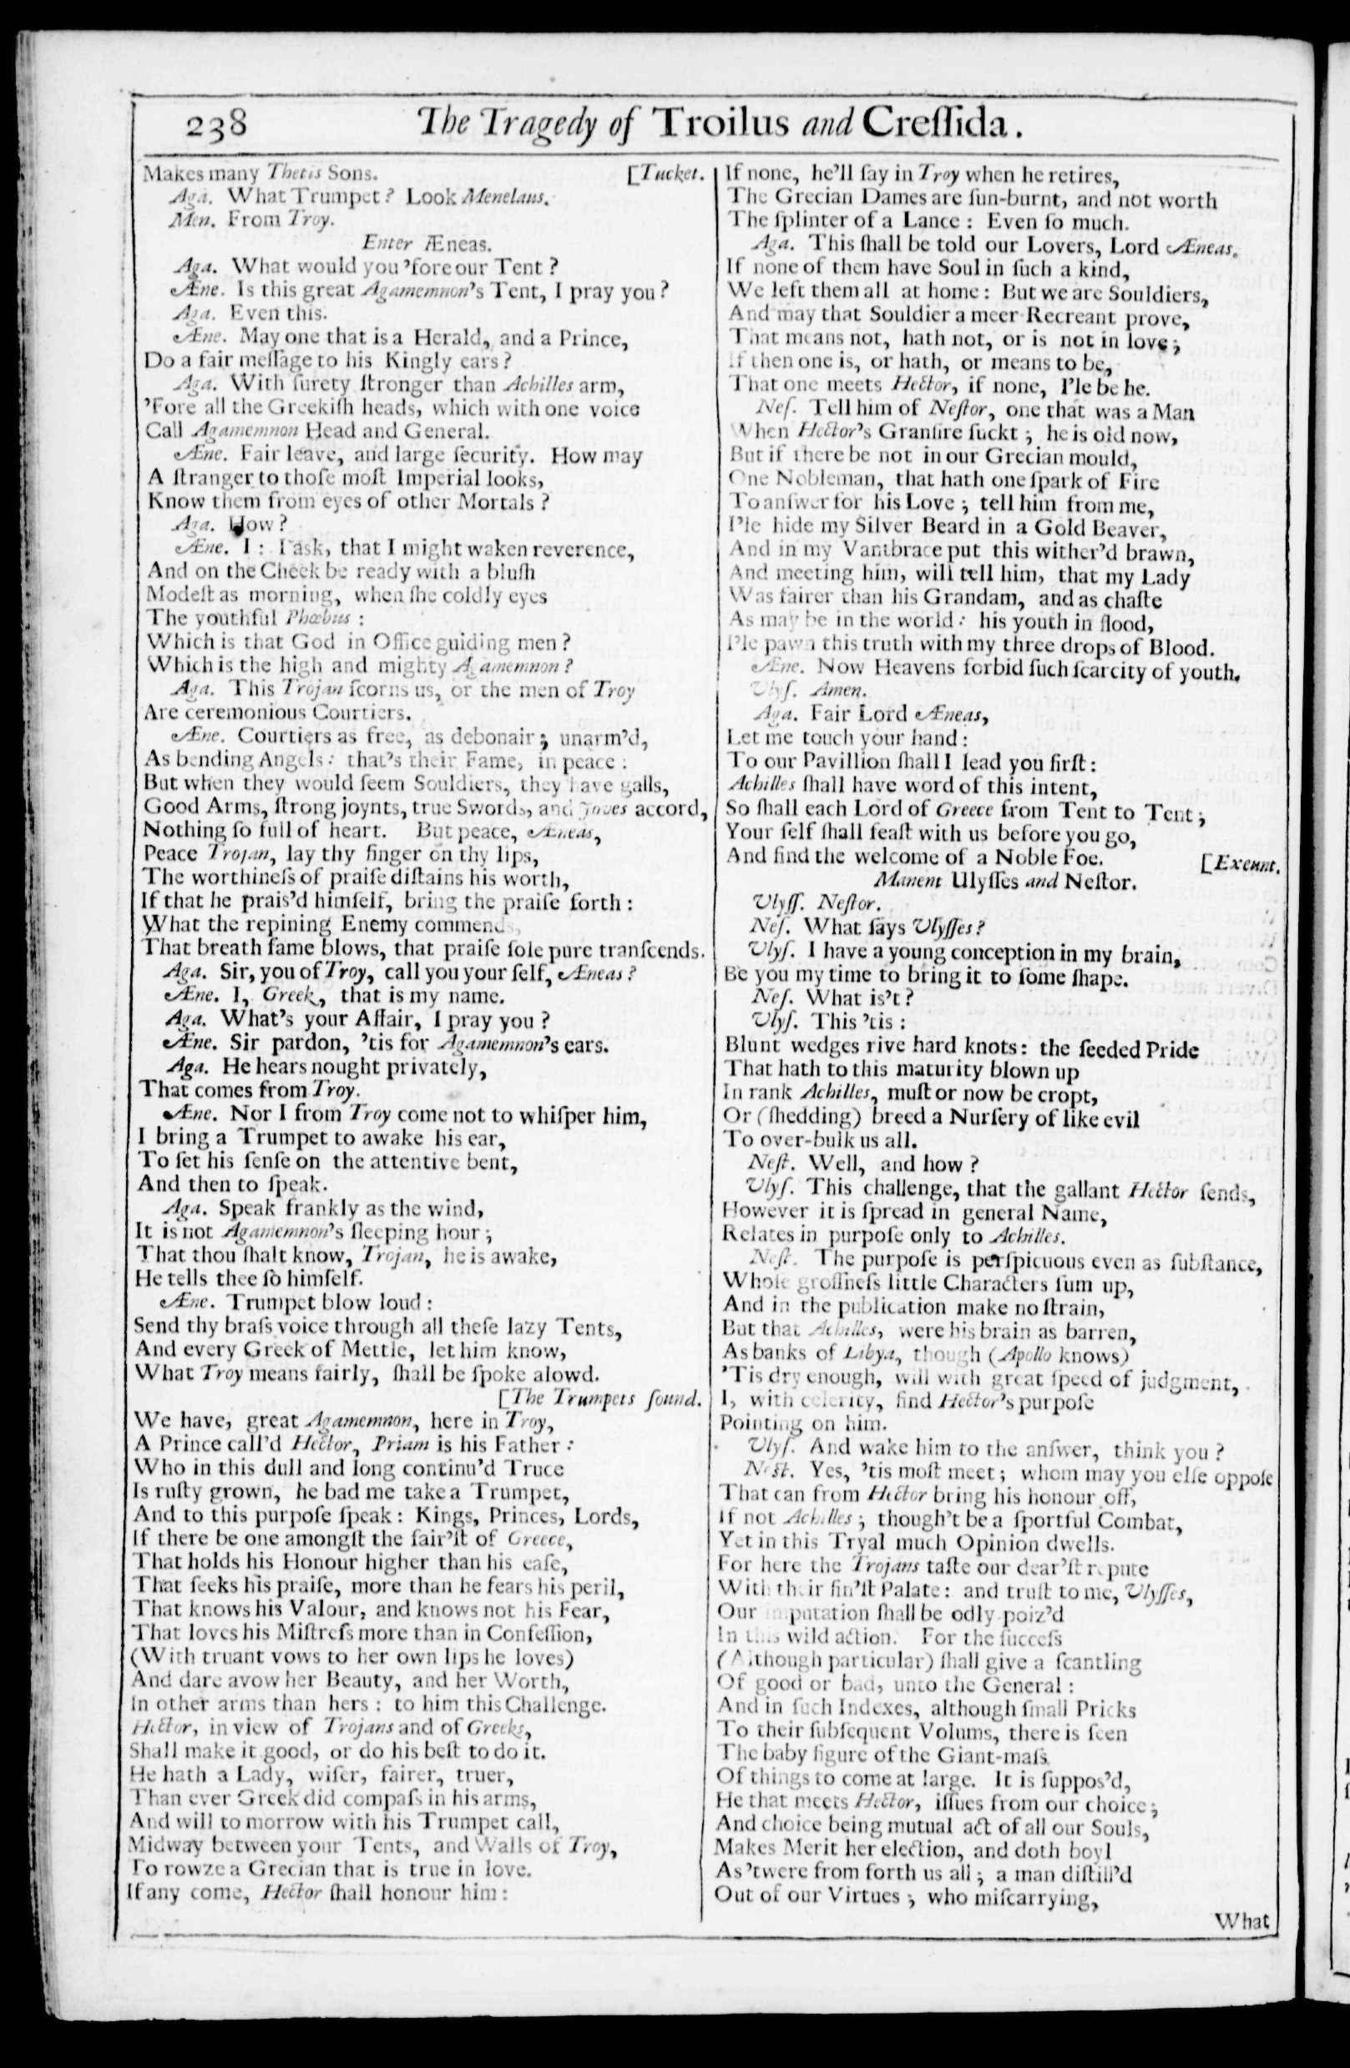 238 The Tragedy of Troilus and Creſſida.
Makes many Thetis Sons. [Tucket.
Aga. What Trumpet? Look Menelaus.
Men. From Troy.
Enter Æneas.
Aga. What would you 'fore our Tent?
Æne. Is this great Agamemnon's Tent, I pray you?
Aga. Even this.
Æne. May one that is a Herald, and a Prince,
Do a fair meſſage to his Kingly ears?
Aga. With ſurety ſtronger than Achilles arm,
'Fore all the Greekiſh heads, which with one voice
Call Agamemnon Head and General.
Æne. Fair leave, and large ſecurity. How may
A ſtranger to thoſe moſt Imperial looks,
Know them from eyes of other Mortals?
Aga. How?
Æne. I: I ask, that I might waken reverence,
And on the Cheek be ready with a bluſh
Modeſt as morning, when ſhe coldly eyes
The youthful Phœbus:
Which is that God in Office guiding men?
Which is the high and mighty Agamemnon?
Aga. This Trojan ſcorns us, or the men of Troy
Are ceremonious Courtiers.
Æne. Courtiers as free, as debonair; unarm'd,
As bending Angels: that's their Fame, in peace:
But when they would ſeem Souldiers, they have galls,
Good Arms, ſtrong joynts, true Swords, and Joves accord,
Nothing ſo full of heart. But peace, Æneas,
Peace Trojan, lay thy finger on thy lips,
The worthineſs of praiſe diſtains his worth,
If that he prais'd himſelf, bring the praiſe forth:
What the repining Enemy commends,
That breath fame blows, that praiſe ſole pure tranſcends.
Aga. Sir, you of Troy, call you your ſelf, Æneas?
Æne. I, Greek, that is my name.
Aga. What's your Affair, I pray you?
Æne. Sir pardon, 'tis for Agamemnon's ears.
Aga. He hears nought privately,
That comes from Troy.
Æne. Nor I from Troy come not to whiſper him,
I bring a Trumpet to awake his ear,
To ſet his ſenſe on the attentive bent,
And then to ſpeak.
Aga. Speak frankly as the wind,
It is not Agamemnon's ſleeping hour;
That thou ſhalt know, Trojan, he is awake,
He tells thee ſo himſelf.
Æne. Trumpet blow loud:
Send thy braſs voice through all theſe lazy Tents,
And every Greek of Mettle, let him know,
What Troy means fairly, ſhall be ſpoke alowd.
[The Trumpets ſound.
We have, great Agamemnon, here in Troy,
A Prince call'd Hector, Priam is his Father:
Who in this dull and long continu'd Truce
Is ruſty grown, he bad me take a Trumpet,
And to this purpoſe ſpeak: Kings, Princes, Lords,
If there be one amongſt the fair'ſt of Greece,
That holds his Honour higher than his eaſe,
That ſeeks his praiſe, more than he fears his peril,
That knows his Valour, and knows not his Fear,
That loves his Miſtreſs more than in Confeſſion,
(With truant vows to her own lips he loves)
And dare avow her Beauty, and her Worth,
In other arms than hers: to him this Challenge.
Hector, in view of Trojans and of Greeks,
Shall make it good, or do his beſt to do it.
He hath a Lady, wiſer, fairer, truer,
Than ever Greek did compaſs in his arms,
And will to morrow with his Trumpet call,
Midway between your Tents, and Walls of Troy,
To rowze a Grecian that is true in love.
If any come, Hector ſhall honour him:
If none, he'll ſay in Troy when he retires,
The Grecian Dames are ſun-burnt, and not worth
The ſplinter of a Lance: Even ſo much.
Aga. This ſhall be told our Lovers, Lord Æneas.
If none of them have Soul in ſuch a kind,
We left them all at home: But we are Souldiers,
And may that Souldier a meer Recreant prove,
That means not, hath not, or is not in love;
If then one is, or hath, or means to be,
That one meets Hector, if none, I'le be he.
Neſ. Tell him of Neſtor, one that was a Man
When Hector's Granſire ſuckt; he is old now,
But if there be not in our Grecian mould,
One Nobleman, that hath one ſpark of Fire
To anſwer for his Love; tell him from me,
I'le hide my Silver Beard in a Gold Beaver,
And in my Vantbrace put this wither'd brawn,
And meeting him, will tell him, that my Lady
Was fairer than his Grandam, and as chaſte
As may be in the world: his youth in flood,
I'le pawn this truth with my three drops of Blood.
Æne. Now Heavens forbid ſuch ſcarcity of youth.
Ulyſ. Amen.
Aga. Fair Lord Æneas,
Let me touch your hand:
To our Pavillion ſhall I lead you firſt:
Achilles ſhall have word of this intent,
So ſhall each Lord of Greece from Tent to Tent;
Your ſelf ſhall feaſt with us before you go,
And find the welcome of a Noble Foe. [Exeunt.
Manent Ulyſſes and Neſtor.
Ulyſſ. Neſtor.
Neſ. What ſays Ulyſſes?
Ulyſ. I have a young conception in my brain,
Be you my time to bring it to ſome ſhape.
Neſ. What is't?
Ulyſ. This 'tis:
Blunt wedges rive hard knots: the ſeeded Pride
That hath to this maturity blown up
In rank Achilles, muſt or now be cropt,
Or (ſhedding) breed a Nurſery of like evil
To over-bulk us all.
Neſt. Well, and how?
Ulyſ. This challenge, that the gallant Hector ſends,
However it is ſpread in general Name,
Relates in purpoſe only to Achilles.
Neſt. The purpoſe is perſpicuous even as ſubſtance,
Whoſe groſſneſs little Characters ſum up,
And in the publication make no ſtrain,
But that Achilles, were his brain as barren,
As banks of Libya, though (Apollo knows)
'Tis dry enough, will with great ſpeed of judgment,
I, with celerity, find Hector's purpoſe
Pointing on him.
Ulyſ. And wake him to the anſwer, think you?
Neſt. Yes, 'tis moſt meet; whom may you elſe oppoſe
That can from Hector bring his honour off,
If not Achilles; though't be a ſportful Combat,
Yet in this Tryal much Opinion dwells.
For here the Trojans taſte our dear'ſt repute
With their fin'ſt Palate: and truſt to me, Ulyſſes,
Our imputation ſhall be odly poiz'd
In this wild action. For the ſucceſs
(Although particular) ſhall give a ſcantling
Of good or bad, unto the General:
And in ſuch Indexes, although ſmall Pricks
To their ſubſequent Volums, there is ſeen
The baby figure of the Giant-maſs
Of things to come at large. It is ſuppos'd,
He that meets Hector, iſſues from our choice;
And choice being mutual act of all our Souls,
Makes Merit her election, and doth boyl
As 'twere from forth us all; a man diſtill'd
Out of our Virtues; who miſcarrying,
What